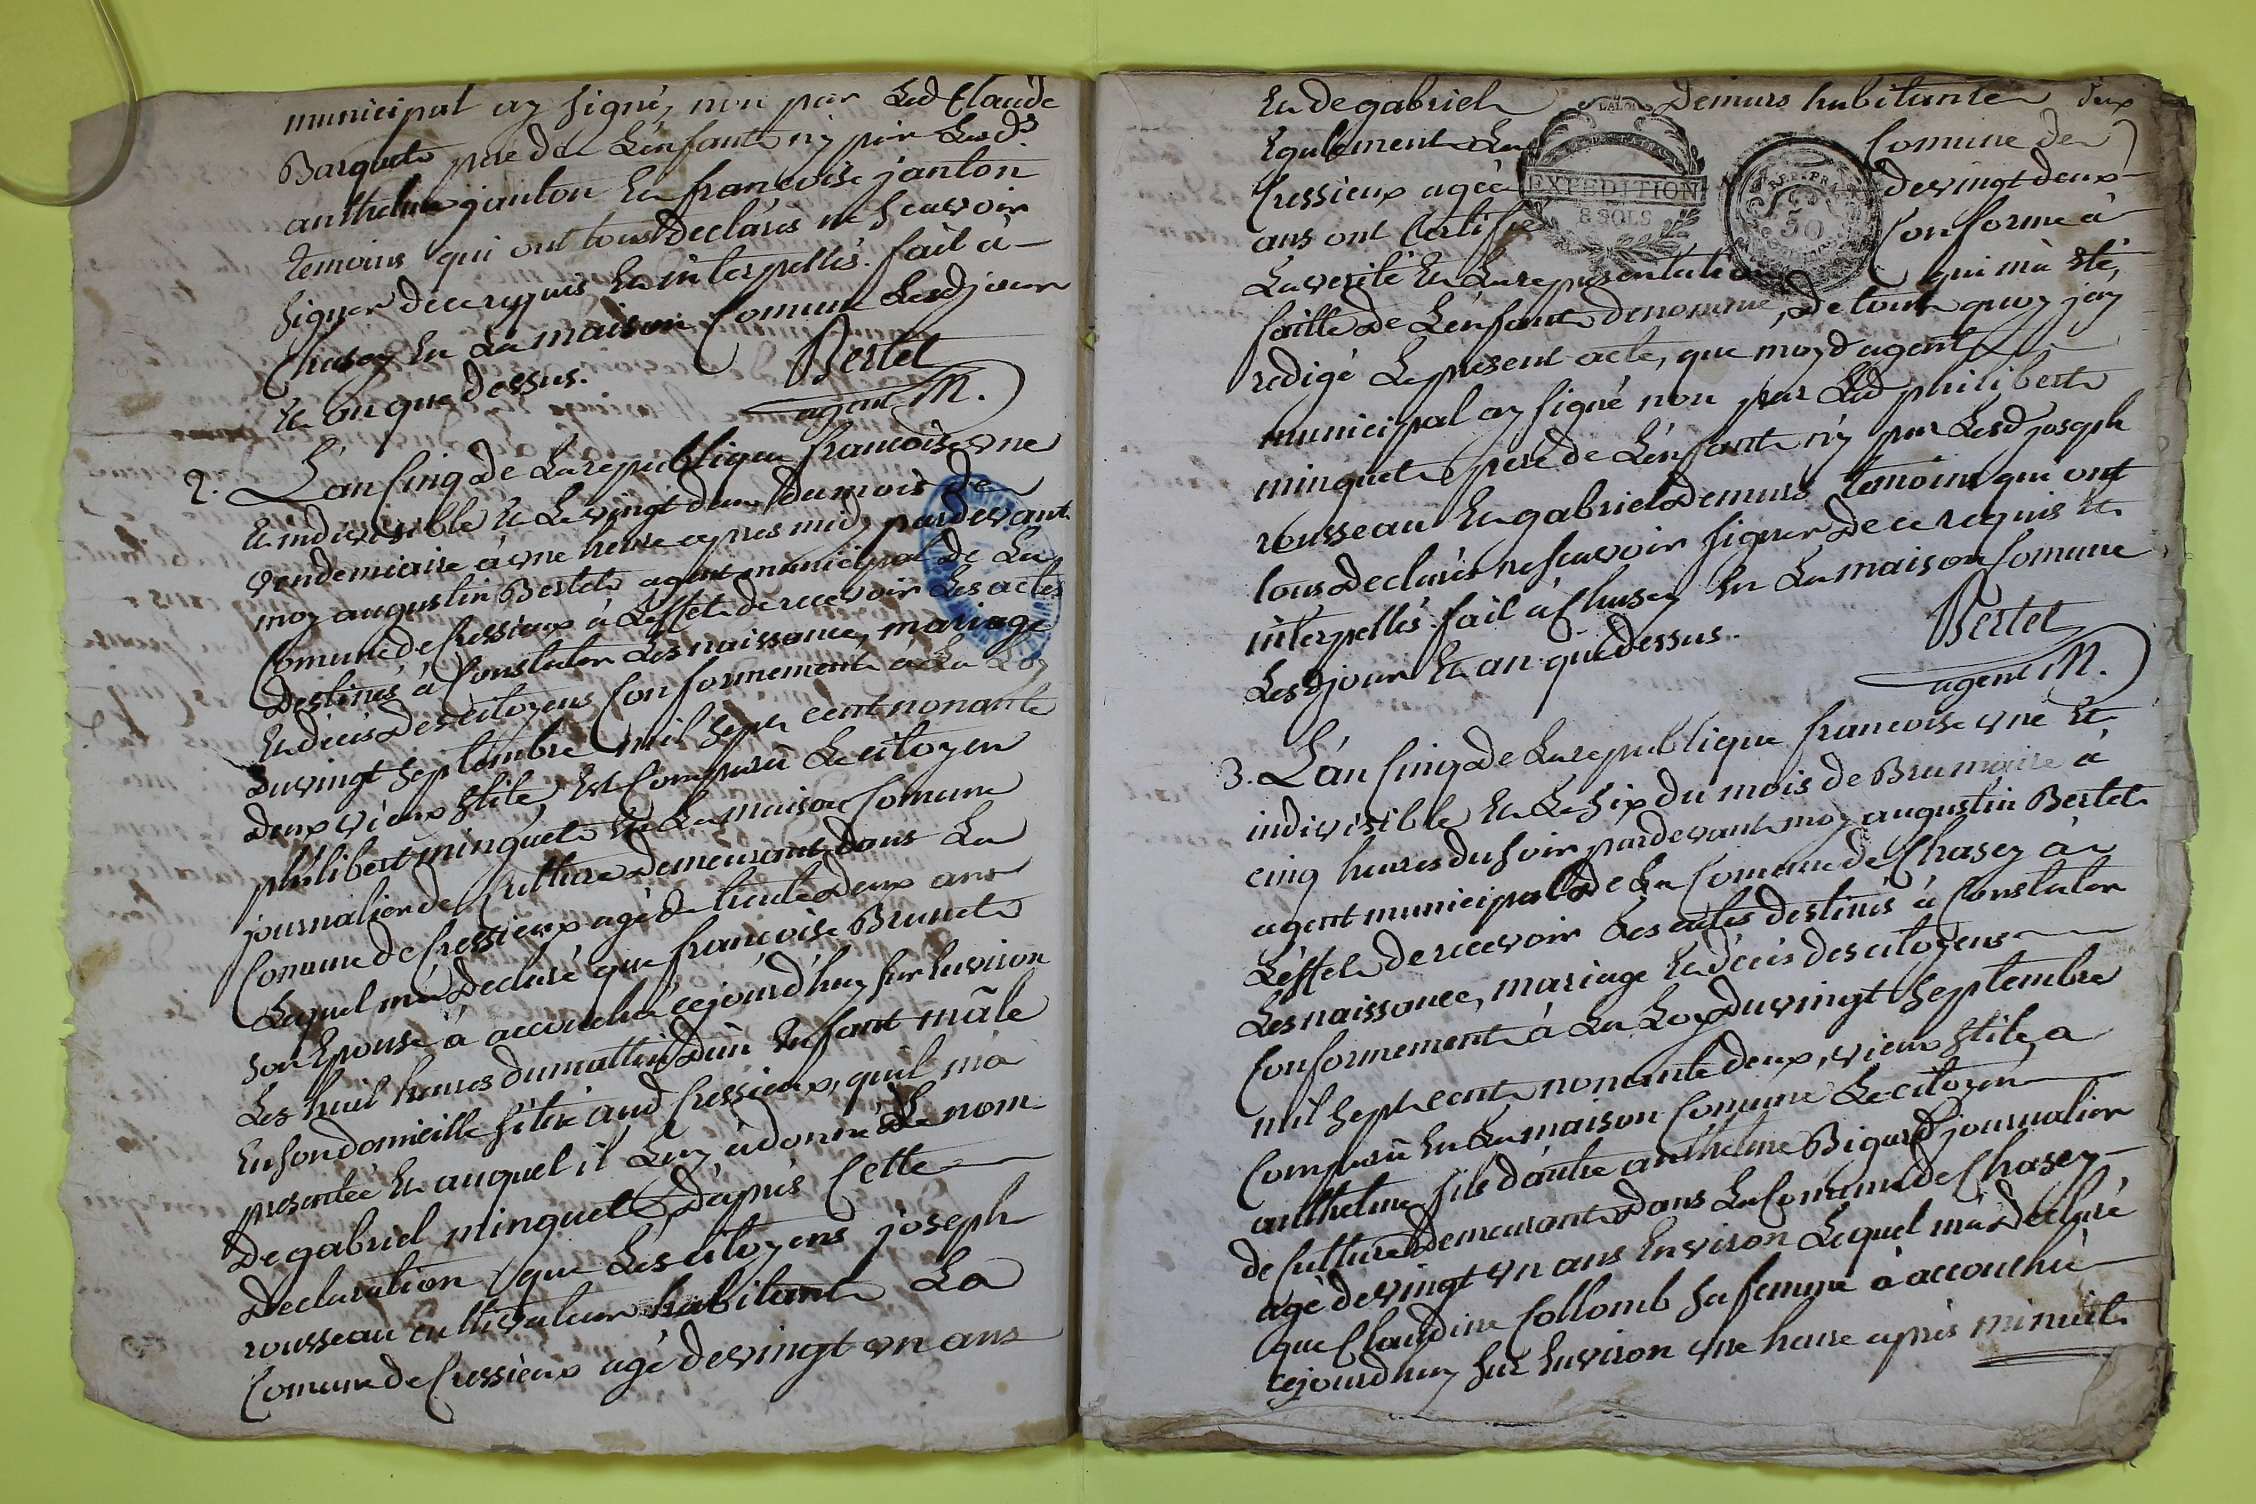 municipal ay signé, non par Led Claude
Barquet pere de L'enfant ny par Lesds
anthelme janton Et francoise janton
temoins qui ont tous declarés ne scavoir
signer de ce requis Et interpellés. fait à
Chasey En La maison Comune Lesd jour
Et an que dessus.
Bertet
agent M.
2. L'an Cinq de La republique francoise une
Et indivisible Et Le vingt deux du mois de
vendemiaire à une heure apres midy pardevant
moy augustin Bertet agent municipal de La
Comune de Cressieux à L'effet de recevoir Les actes
destinés à Constater Les naissance, mariage
Et décès des citoyens Conformement à La Loy
du vingt septembre mil sept cent nonante
deux vieux stile, Est Comparû Le citoyen
philibert minguet En La maison Comune
journalier de Culture demeurant dans La
Comune de Cressieux agé de trente deux ans
Lequel m'a declaré que francoise Brunet
son Epouse à accouché cejourd'huy sur Environ
Les huit heures du mattin d'un Enfant mâle
En son domicille sitié aud Cressieux, qu'il m'a
presentée Et auquel il Luy à donné Le nom
De gabriel minguet, D'apres Cette
Declaration que Les citoyens joseph
rousseau cultivateur habitant La
Comune de Cressieux agé de vingt un ans
Et de gabriel Demurs habitante deux
Egalement La Comune de
Cressieux agée de vingt deux
ans ont Certifié Conforme à
EXPEDITION
8 SOLS
REP. FRA.
50
La verité Et La representation qui m'a été,
faitte de L'enfant denommé, de tout quoy jay
redigé Le present acte, que moyd agent
municipal ay signé non par Led philibert
minguet pere de L'enfant ny par Lesd joseph
rousseau Et gabriel demurs temoins qui ont
tous declarés ne scavoir signer de ce requis Et
interpellés. fait à Chasey En La maison Comune
Lesd jour Et an que dessus.
Bertet
agent M.
3. L'an Cinq de La republique francoise une Et
indivisible Et Le six du mois de Brumaire à
cinq heures du soir pardevant moy augustin Bertet
agent municipal de La Comune de Chasey à
L'effet de recevoir Les actes destinés à Constater
Les naissance, mariage Et décès des citoyens
Conformement à La Loy du vingt septembre
mil sept cent nonante deux, vieux stile a
Comparû En La maison Comune Le citoyen
anthelme fils d'autre anthelme Bigard journalier
de Culture demeurant dans La Comune de Chasey
agé de vingt un ans Environ Lequel m'a declaré
que Claudine Collomb sa femme à accouchée
cejourdhuy sur Environ une heure après minuit